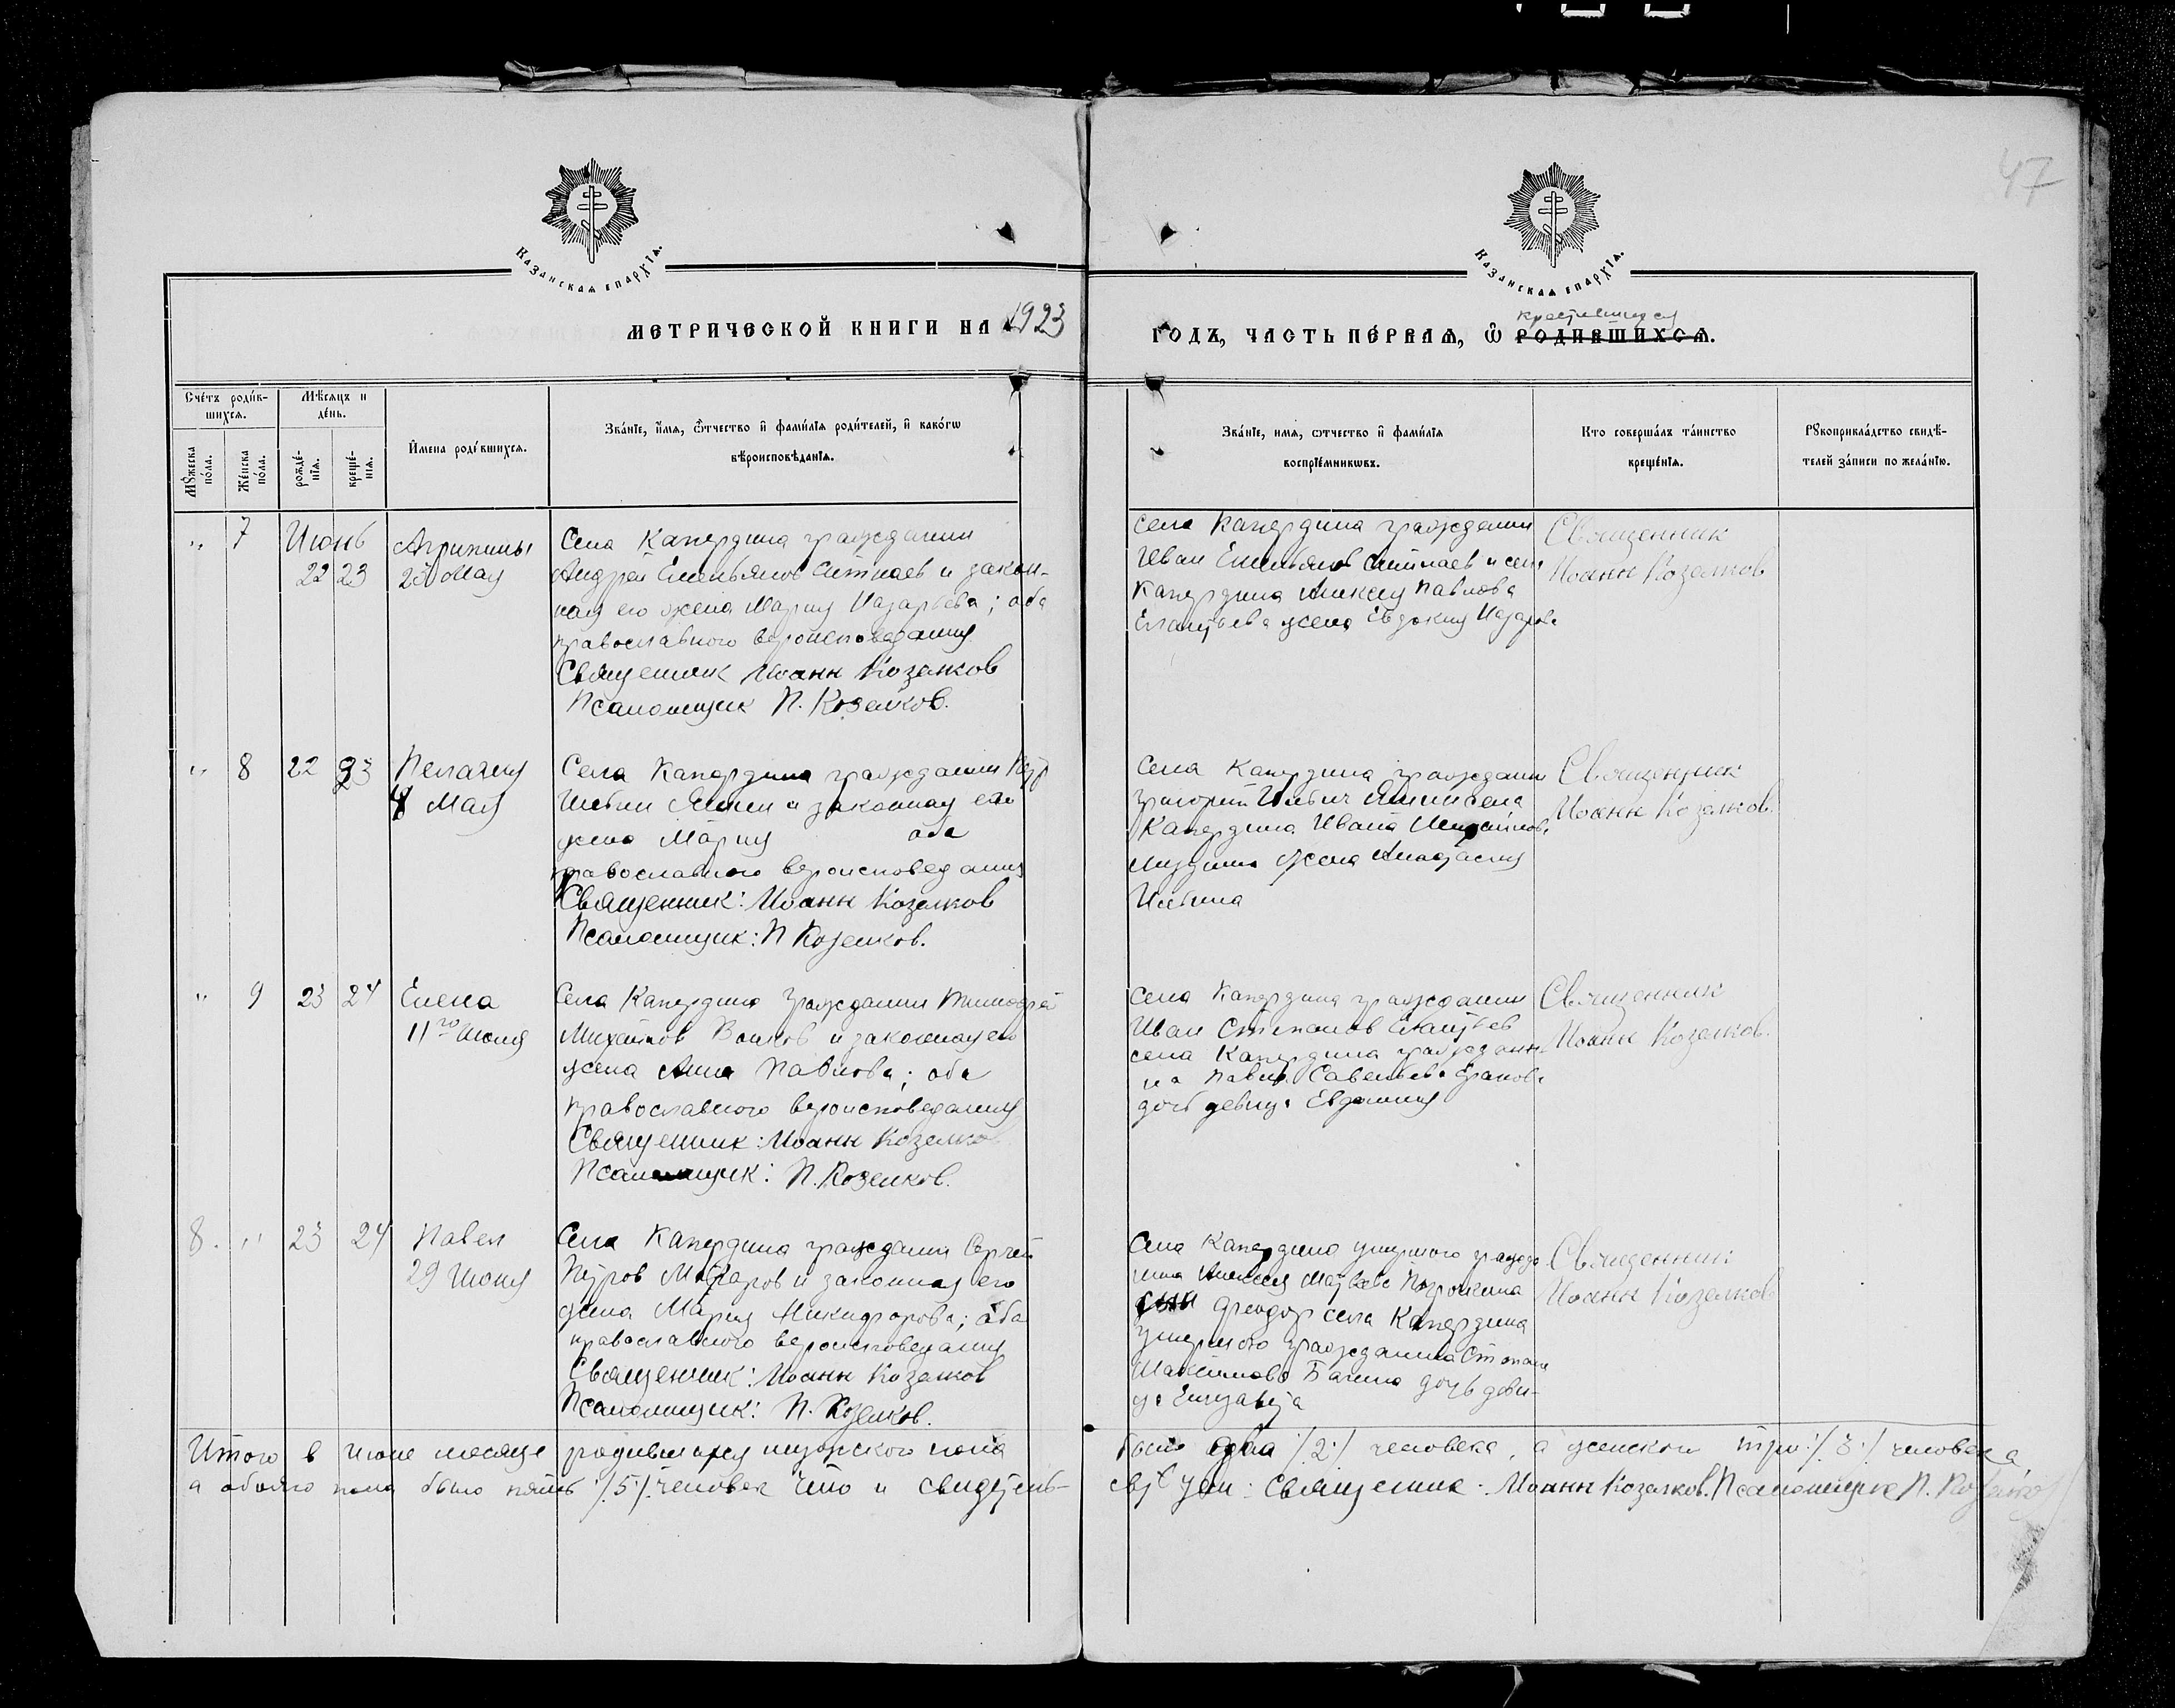 47
Казанская епархїѧ.
Казанская епархїѧ.
МЕТРИЧЕСКОЙ КНИГИ НА 1923
ГОДЪ, ЧАСТЬ ПЕРВАЯ, Ѽ РОДИВШИХСЯ.
крестившихся
Счетъ родив-
шихся.
Мѣсяцъ и
день.
Мужеска
пола.
Женска
пола.
рожде-
нїя.
креще-
нїя.
Имена родившихся.
Званїе, имя, ѿтчество и фамилїя родителей, и какогѡ
вѣроисповѣданїя.
Званїе, имя, ѿтчество и фамилїя
воспрїемникѡвъ.
Кто совершалъ таинство
крещенїя.
Рукоприкладство свидѣ-
телей записи по желанїю.
" 7 Июнь
22 23
Агрипины
23 Мая
Села Капердина гражданин
Андрей Емельянов Ситнаев и закон-
ная его жена Мария Назарьева; оба
православного вероисповедания
Священник Иоанн Козелков
Псаломщик П. Козелков.
Села Капердина гражданин
Иван Емельянов Ситнаев и села
Капердина Алексея Павлова
Елантьева жена Евдокия Назарова
Священник
Иоанн Козелков
" 8 22 23 Пелагия
4 Мая
Села Капердина гражданин Петр
Ильин Яшин и законная его
жена Мария оба
православного вероисповедания
Священник: Иоанн Козелков
Псаломщик: П Козелков.
Села Капердина гражданин
Григорий Ильич Яшин села
Капердина Ивана Михайлов.
жена Анастасия
Ильина
Священник
Иоанн Козелков.
" 9 23 24 Елена
11го Июля
Села Капердина гражданин Тимофей
Михайлов Волков и законная его
жена Анна Павлова; оба
православного вероисповедания
Священник: Иоанн Козелков
Псаломщик: П. Козелков.
Села Капердина гражданин
Иван Степанов Елантьев
села Капердина граждани-
на Павла Савельева
дочь девица Евдокия
Священник
Иоанн Козелков.
8. " 23 24 Павел
29 Июня
Села Капердина гражданин Сергей
Петров Макаров и законная его
жена Мария Никифорова; оба
православного вероисповедания
Священник: Иоанн Козелков
Псаломщик: П. Козелков.
Села Капердина умершого гражда
нина Алексея Матвеева
сын Феодор села Капердина
умершого гражданина Степана
дочь деви-
ца Елизавета
Священник
Иоанн Козелков
Итого в Июне месяце родившихся мужского пола было два /2/ человека, а женского три /3/ человека,
а обоего пола было пять /5/ человек что и свидетель-
ствуем: Священник: Иоанн Козелков. Псаломщик П. Козелков